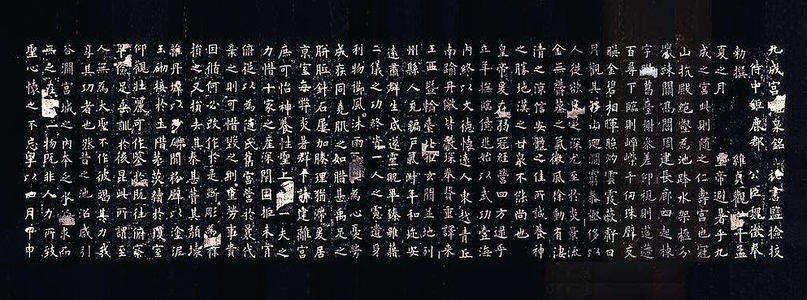 九成宮醴泉銘 秘書監檢校
侍中鉅鹿郡公臣魏徵奉
敕撰 維貞觀六年孟
夏之月 皇帝避暑乎九
成之宮此則隨之仁壽宮也冠
山抗殿絕壑為池跨水架楹分
巖竦闕高閣周建長廊四起棟
宇膠葛臺榭參差仰視則迢遞
百尋下臨則崢嶸千仞珠璧交
映金碧相暉照灼雲霞蔽虧日
月觀其移山迴澗窮泰極侈以
人從欲良足深尤至於炎景流
金無鬱蒸之氣微風徐動有淒
清之涼信安體之佳所誠養神
之勝地漢之甘泉不能尚也
皇帝爰在弱冠經營四方逮乎
立年撫臨億兆始以武功壹海
內終以文德懷遠人東越青丘
南踰丹徼皆獻琛奉贄重譯來
王西暨輪臺北拒玄闕並地列
州縣人充編戶氣淑年和邇安
遠肅群生咸遂靈貺畢臻雖藉
二儀之功終資一人之慮遺身
利物櫛風沐雨百姓為心憂勞
成疾同堯肌之如腊甚禹足之
胼胝針石屢加腠理猶滯爰居
京室每弊炎暑群下請建離宮
庶可怡神養性聖上愛一夫之
力惜十家之產深閉固拒未肯
俯從以為隨氏舊宮營於曩代
棄之則可惜毀之則重勞事貴
因循何必改作於是斲彫為樸
損之又損去其泰甚葺其頹壞
雜丹墀以沙礫間粉壁以塗泥
玉砌接於土階茅茨續於瓊室
仰觀壯麗可作鑒於既往俯察
卑儉足垂訓於後昆此所謂至
人無為大聖不作彼竭其力我
享其功者也然昔之池沼咸引
谷澗宮城之內本乏水源求而
無之在乎一物既非人力所致
聖心懷之不忘粵以四月甲申